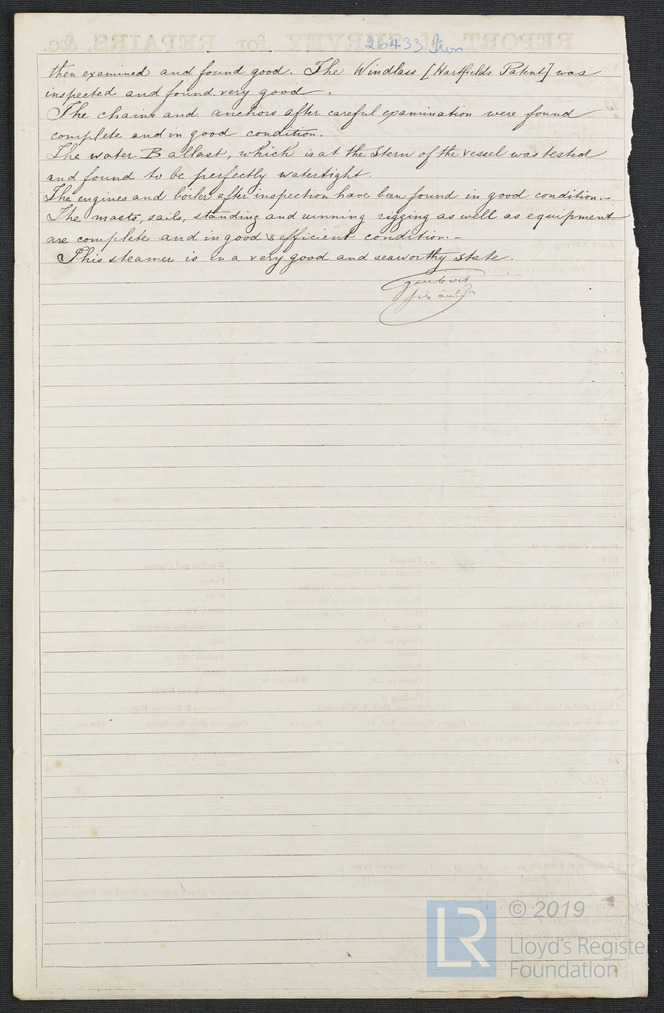 26433 Iron
then examined and found good. The Windlass [Hartfields Patent] was
inspected and found very good.
The chains and anchors after careful examination were found
complete and in good condition.
The water Ballast, which is at the Stern of the vessel was tested
and found to be perfectly watertight.
The engines and boiler after inspection have been found in good condition.-
The masts, sails, standing and running rigging as well as equipment
are complete and in good & efficient condition.-
This steamer is in a very good and seaworthy state.
© 2019
Lloyd's Register
Foundation
LR